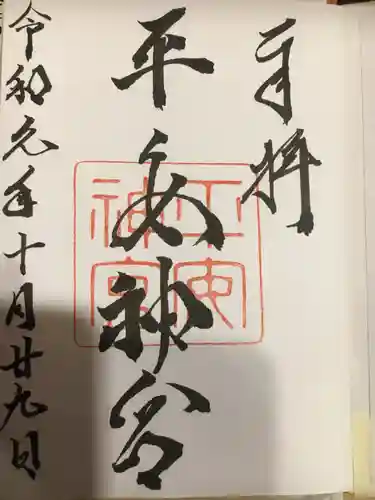 奉拝
平安神宮
平安
神宮
令和元年十月廿九日